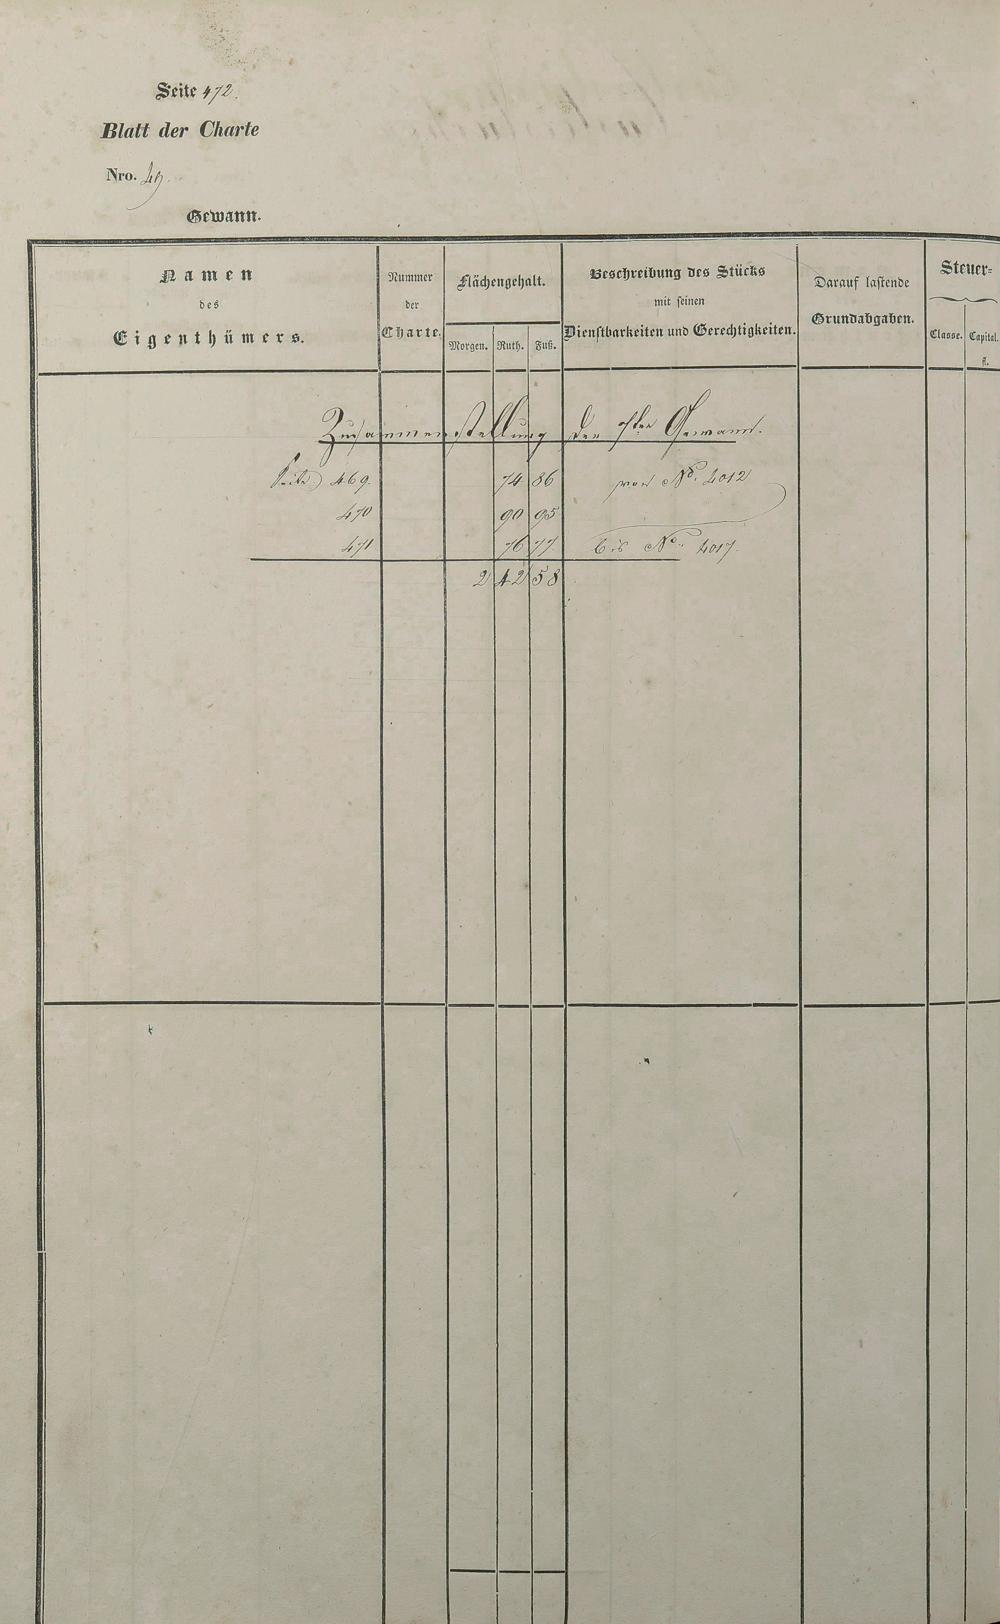 Seite 472.
Blatt der Charte
Nro. 49.
Gewann.
Namen
des
Eigenthümers.
Nummer
der
Charte.
Flächengehalt.
Morgen. Ruth. Fuß.
Beschreibung des Stücks
mit seinen
Dienstbarkeiten und Gerechtigkeiten.
Darauf lastende
Grundabgaben.
Steuer-
Classe. Capital.
fl.
Zusammenstellung der Gewann.
Seite 469. 74 86 von No. 4012
470 90 95
471 76 77 bis No. 4017.
2 42 58